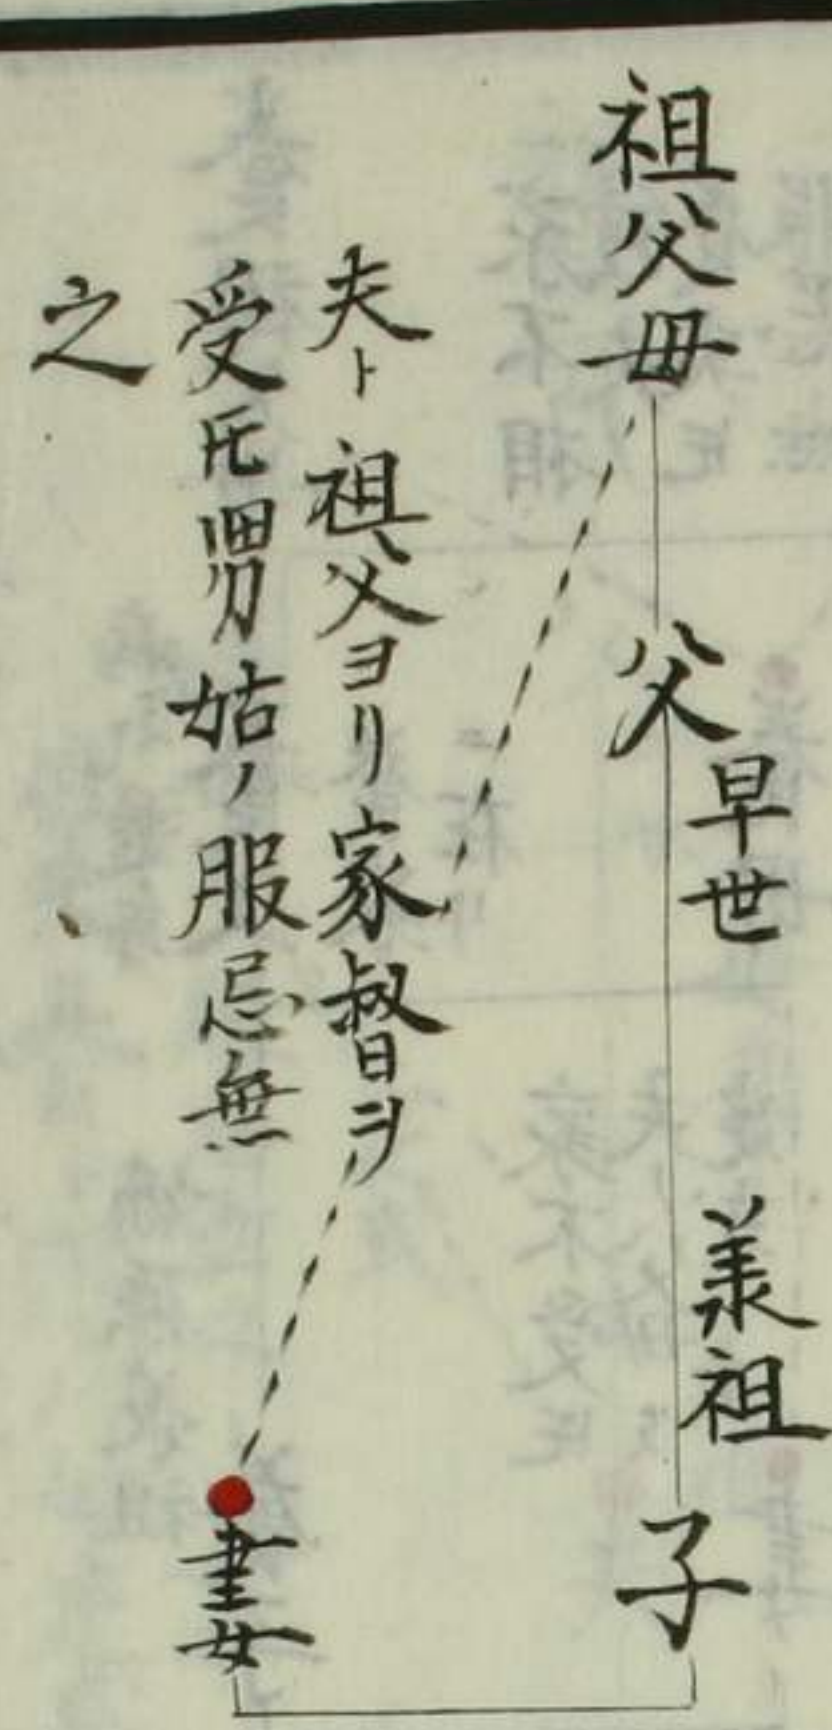 祖父母
父
早世
承祖
子
夫ト祖父ヨリ家督ヲ
受𪜈舅姑ノ服忌無
之
妻